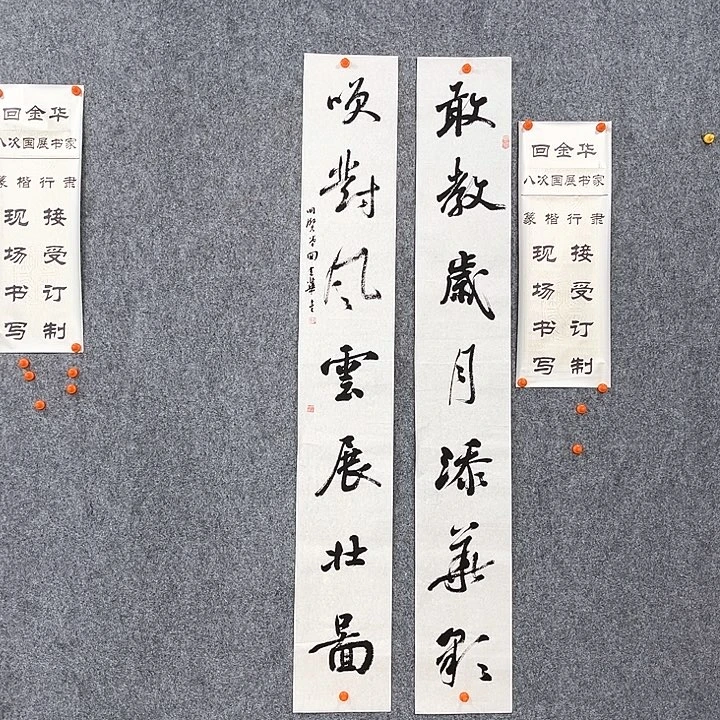 敢教歲月添華彩
笑對風雲展壯圖
回金华
八次国展书家
篆楷行隶
接受订制
现场书写
回金华
八次国展书家
篆楷行隶
接受订制
现场书写